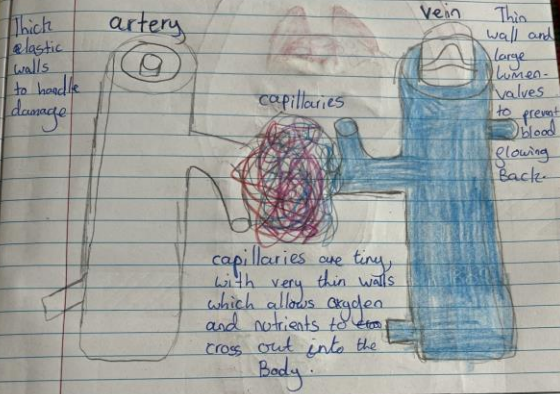 artery
Thick
elastic
walls
to handle
damage
capillaries
vein
Thin
wall and
large
lumen-
valves
to prevent
blood
flowing
Back.
capillaries are tiny,
with very thin walls
which allows oxygen
and nutrients to
cross out into the
Body.